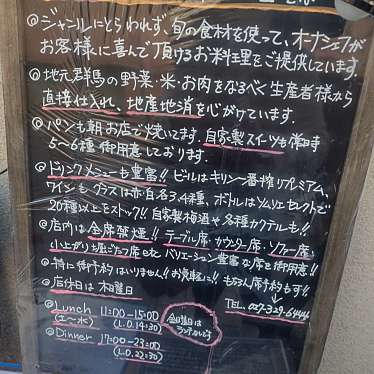 ◎ジャンルにとらわれず、旬の食材を使って、オーナーシェフが
お客様に喜んで頂けるお料理をご提供しています。
◎地元群馬の野菜・米・お肉をなるべく生産者様から
直接仕入れ、地産地消を心がけています。
◎パンも朝お店で焼いてます。自家製スイーツも常時
5〜6種御用意しております。
◎ドリンクメニューも豊富!!ビールはキリン一番搾りプレミアム、
ワインもグラスは赤・白各3,4種、ボトルはソムリエセレクトで
20種以上をストック!!自家製梅酒や各種カクテルも!!
◎店内は全席禁煙!!テーブル席・カウンター席・ソファー席・
小上がり堀ごたつ席とバリエーション豊富な席を御用意!!
◎特に御予約はいりません!!お気軽に!!もちろん席予約もす!!
◎店休日は木曜日
TEL、027-329-6444
◎Lunch 11:00-15:00
(土〜水) (L.O.14:30)
金日曜日は
ランチのみです
◎Dinner 17:00-23:00
(L.O.22:30)